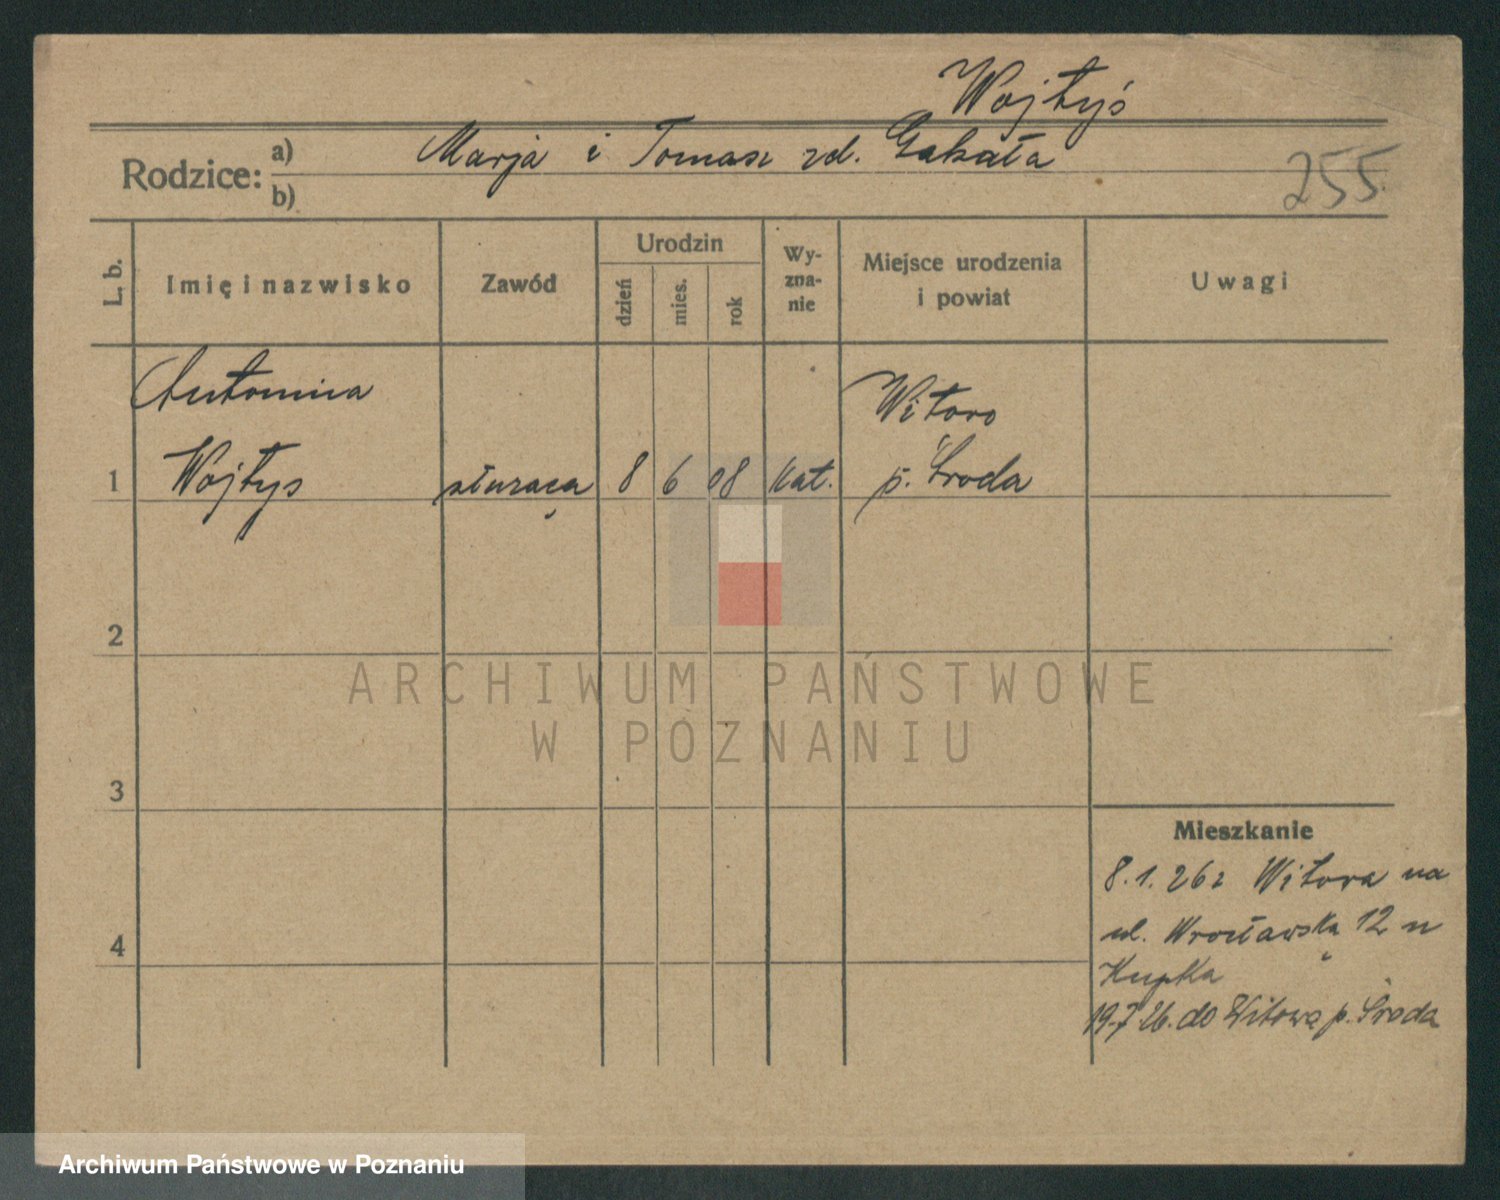 Wojtyś
Rodzice: a) Marja i Tomasz zd. Gakała
b)
255
L. b.
Imię i nazwisko
Zawód
Urodzin
dzień
mies.
rok
Wy-
zna-
nie
Miejsce urodzenia
i powiat
Uwagi
Antonina
Witowo
1 Wojtys służąca 8 6 08 kat. p. Środa
2
ARCHIWUM PAŃSTWOWE
W POZNANIU
3
Mieszkanie
8.1.26 z Witowa na
4 ul. Wrocławską 12 u
Kupka
19.7.26. do Witowa p. Środa
Archiwum Państwowe w Poznaniu